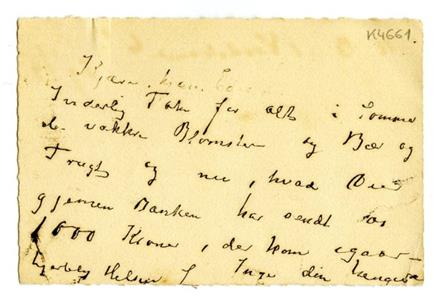 K4661.
Kjære
Inderlig Tak for alt i Sommer
de vakkre Blomster og Bær og
Frugt og nu, hvad
gjennem Banken har sendt os
1000 Kroner, der kom igaar
Hilsen Inge den